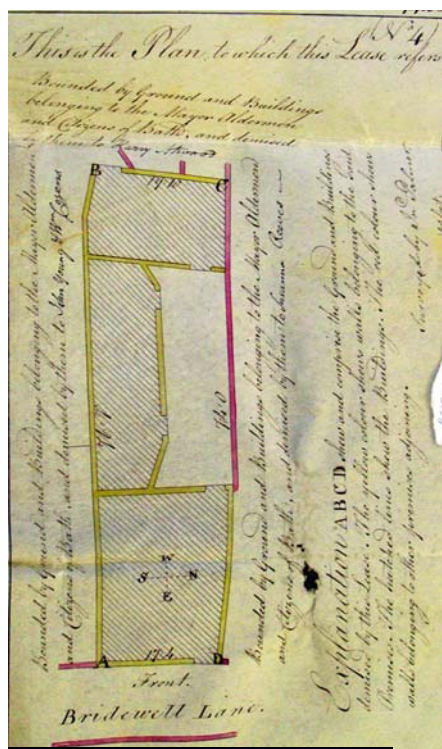 (No. 4)
This is the Plan, to which this Lease refers
Bounded by Ground and Buildings
belonging to the Mayor Aldermen
and Citizens of Bath, and demised
by them to Harry Atwood
B
C
17.10
Bounded by Ground and Buildings belonging to the Mayor Aldermen
and Citizens of Bath, and demised by them to John Young &
74.0
Bounded by Ground and Buildings belonging to the Mayor Aldermen
and Citizens of Bath, and demised by them to Susanna Reeves
W
S N
E
A
17.4
D
Front.
Bridewell Lane.
Explanation ABCD shew and comprise the Ground and Buildings
demised by this Lease. The yellow colour shew walls belonging to the said
Premises. The hatched lines shew the Buildings. The red colour shew
walls belonging to other premises adjoining.
Surveyed by Jno. Palmer